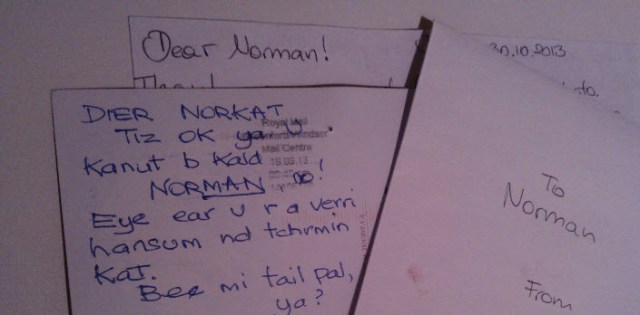 Dear Norman!
30.10.2013
to.
DIER NORKAT
TIZ OK ya u.
Kanut b Kald
NORMAN no!
Eye ear u r a verri
hansum nd tchrmin
KaT.
Bee mi tail pal,
ya?
Royal Mail
Mail Centre
To
Norman
From